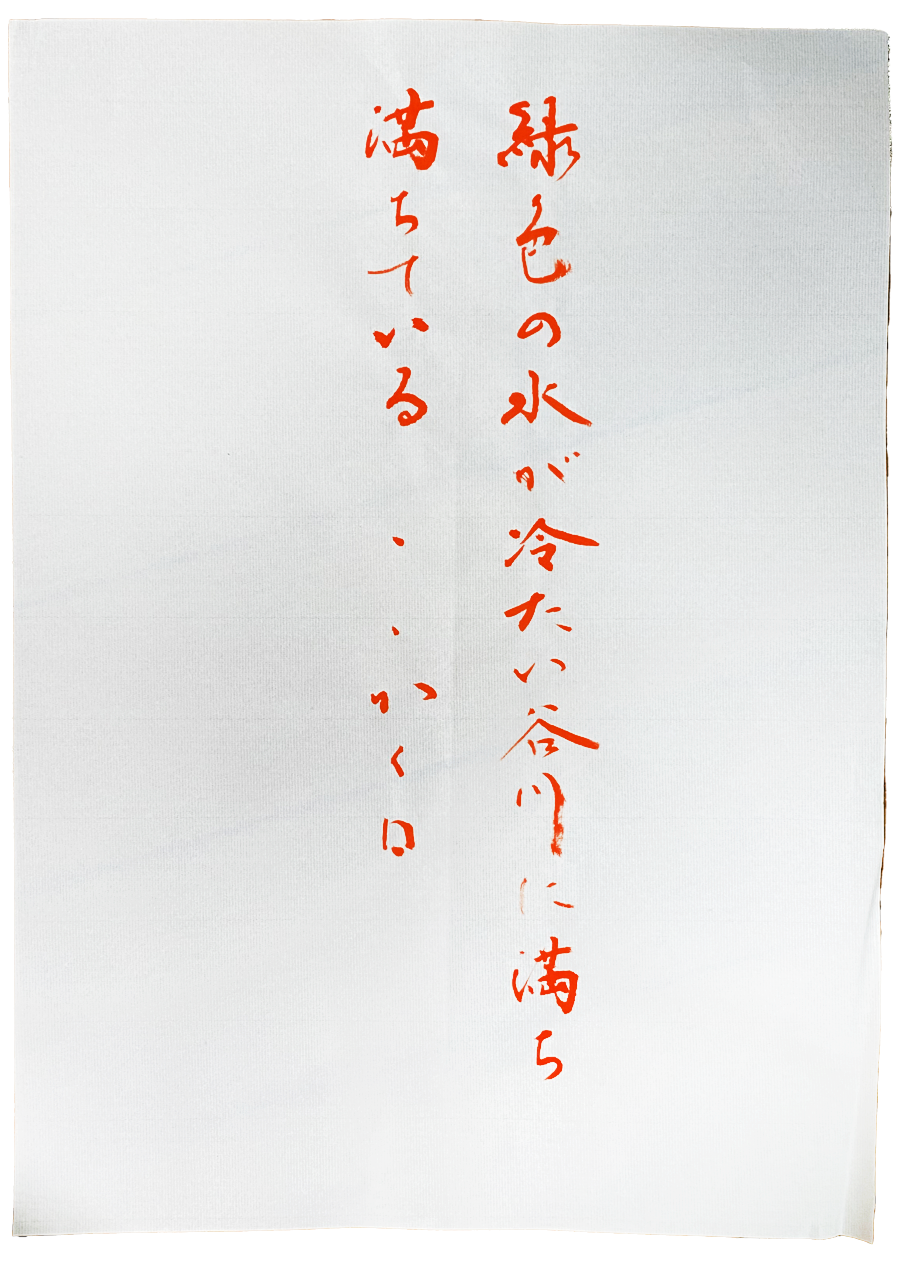 緑色の水が冷たい谷川に満ち
満ちている、、かく日